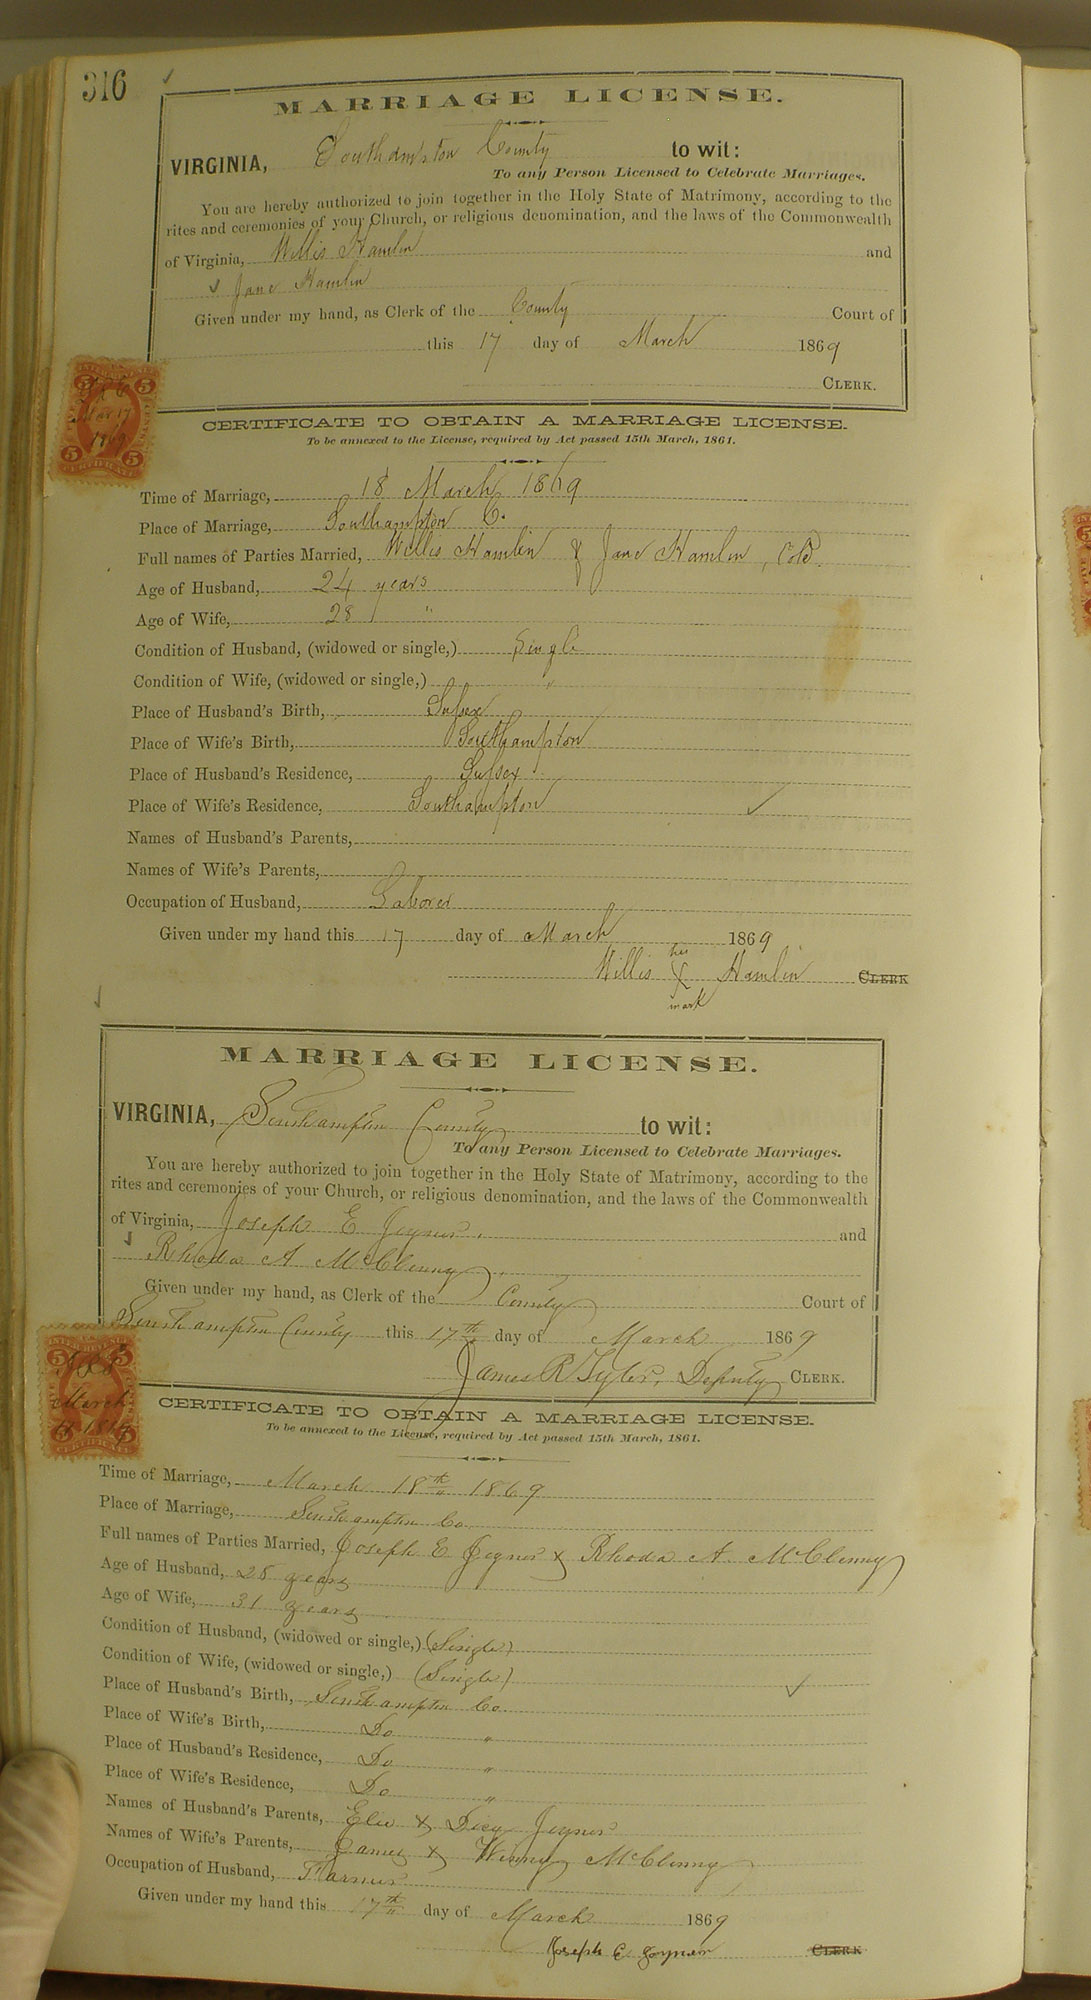 316
MARRIAGE LICENSE.
VIRGINIA, Southampton County to wit:
To any Person Licensed to Celebrate Marriages.
You are hereby authorized to join together in the Holy State of Matrimony, according to the
rites and ceremonies of your Church, or religious denomination, and the laws of the Commonwealth
of Virginia, Willis Hamlin and
Jane Hamlin
Given under my hand, as Clerk of the County Court of
this 17 day of March 1869
CLERK.
CERTIFICATE TO OBTAIN A MARRIAGE LICENSE.
To be annexed to the License, required by Act passed 15th March, 1861.
Time of Marriage, 18 March 1869
Place of Marriage, Southampton C.
Full names of Parties Married, Willis Hamlin & Jane Hamlin, Cold.
Age of Husband, 24 years
Age of Wife, 28 "
Condition of Husband, (widowed or single,) Single
Condition of Wife, (widowed or single,) "
Place of Husband's Birth, Sussex
Place of Wife's Birth, Southampton
Place of Husband's Residence, Sussex
Place of Wife's Residence, Southampton
Names of Husband's Parents,
Names of Wife's Parents,
Occupation of Husband, Laborer
Given under my hand this 17 day of March 1869
his
Willis X Hamlin CLERK
mark
MARRIAGE LICENSE.
VIRGINIA, Southampton County to wit:
To any Person Licensed to Celebrate Marriages.
You are hereby authorized to join together in the Holy State of Matrimony, according to the
rites and ceremonies of your Church, or religious denomination, and the laws of the Commonwealth
of Virginia, Joseph E Joyner. and
Rhoda A McClenny
Given under my hand, as Clerk of the County Court of
Southampton County this 17th day of March 1869
James R Tyler, Deputy CLERK.
CERTIFICATE TO OBTAIN A MARRIAGE LICENSE.
To be annexed to the License, required by Act passed 15th March, 1861.
Time of Marriage, March 18th 1869
Place of Marriage, Southampton Co.
Full names of Parties Married, Joseph E Joyner & Rhoda A. McClenny
Age of Husband, years
Age of Wife, 31 years
Condition of Husband, (widowed or single,) (Single)
Condition of Wife, (widowed or single,) (Single)
Place of Husband's Birth, Southampton Co.
Place of Wife's Birth, Do "
Place of Husband's Residence, Do "
Place of Wife's Residence, Do "
Names of Husband's Parents, & Joyner
Names of Wife's Parents, James & Winney McClenny
Occupation of Husband, Farmer
Given under my hand this 17th day of March 1869
Joseph E Joyner CLERK